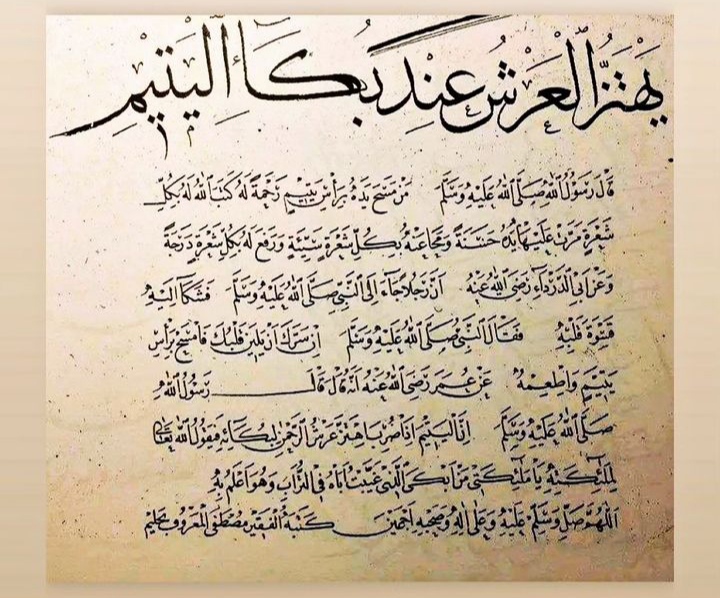 يَهْتَزُّ الْعَرْشُ عِنْدَ بُكَاءِ الْيَتِيْمِ
قَالَ رَسُوْلُ اللّٰهِ صَلَّى اللّٰهُ عَلَيْهِ وَسَلَّمَ مَنْ مَسَحَ يَدَهُ بِرَأْسِ يَتِيْمٍ رَحْمَةً لَهُ كَتَبَ اللّٰهُ لَهُ بِكُلِّ
شَعْرَةٍ مَرَّتْ عَلَيْهَا يَدُهُ حَسَنَةً وَمَحَا عَنْهُ بِكُلِّ شَعْرَةٍ سَيِّئَةً وَرَفَعَ لَهُ بِكُلِّ شَعْرَةٍ دَرَجَةً
وَعَنْ اَبِى الدَّرْدَاءِ رَضِىَ اللّٰهُ عَنْهُ اَنَّ رَجُلًا جَاءَ اِلَى النَّبِىِّ صَلَّى اللّٰهُ عَلَيْهِ وَسَلَّمَ فَشَكَا اِلَيْهِ
قَسْوَةَ قَلْبِهِ فَقَالَ النَّبِىُّ صَلَّى اللّٰهُ عَلَيْهِ وَسَلَّمَ اِنْ سَرَّكَ اَنْ يَلِيْنَ قَلْبُكَ فَامْسَحْ بِرَأْسِ
يَتِيْمٍ وَاَطْعِمْهُ عَنْ عُمَرَ رَضِىَ اللّٰهُ عَنْهُ اَنَّهُ قَالَ قَالَ رَسُوْلُ اللّٰهِ
صَلَّى اللّٰهُ عَلَيْهِ وَسَلَّمَ اِنَّ الْيَتِيْمَ اِذَا ضُرِبَ اهْتَزَّ عَرْشُ الرَّحْمٰنِ لِبُكَائِهِ فَيَقُوْلُ اللّٰهُ تَعَالٰى
لِمَلٰئِكَتِهِ يَا مَلٰئِكَتِى مَنْ اَبْكَى الَّذِى غَيَّبْتُ اَبَاهُ فِى التُّرَابِ وَهُوَ اَعْلَمُ بِهِ
اَللّٰهُمَّ صَلِّ وَسَلِّمْ عَلَيْهِ وَعَلٰى اٰلِهِ وَصَحْبِهِ اَجْمَعِيْنَ كَتَبَهُ الْفَقِيْرُ مُصْطَفَى الْمَعْرُوْفُ بِحَلِيْم